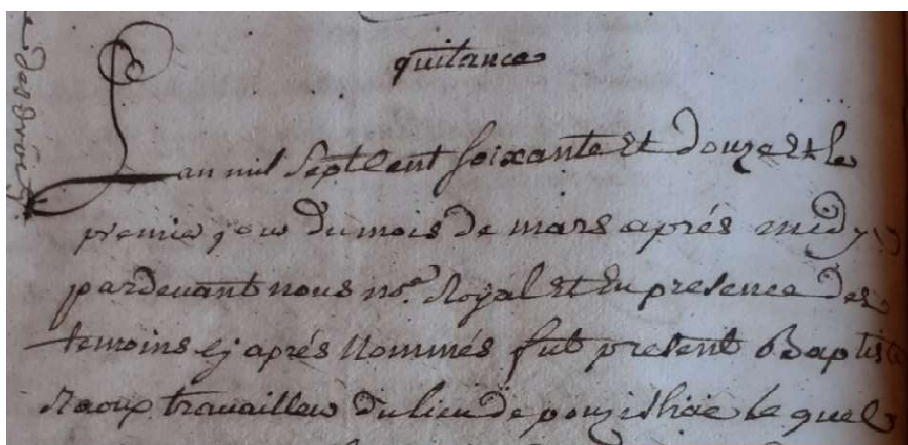 quitance
L'an mil sept cent soixante et douze et le
premier jour du mois de mars aprés midy
pardevant nous no.e Royal et en presence des
temoins cy aprés Nommés fut present Baptiste
Raoux travailleur du lieu de pouzilhac le quel